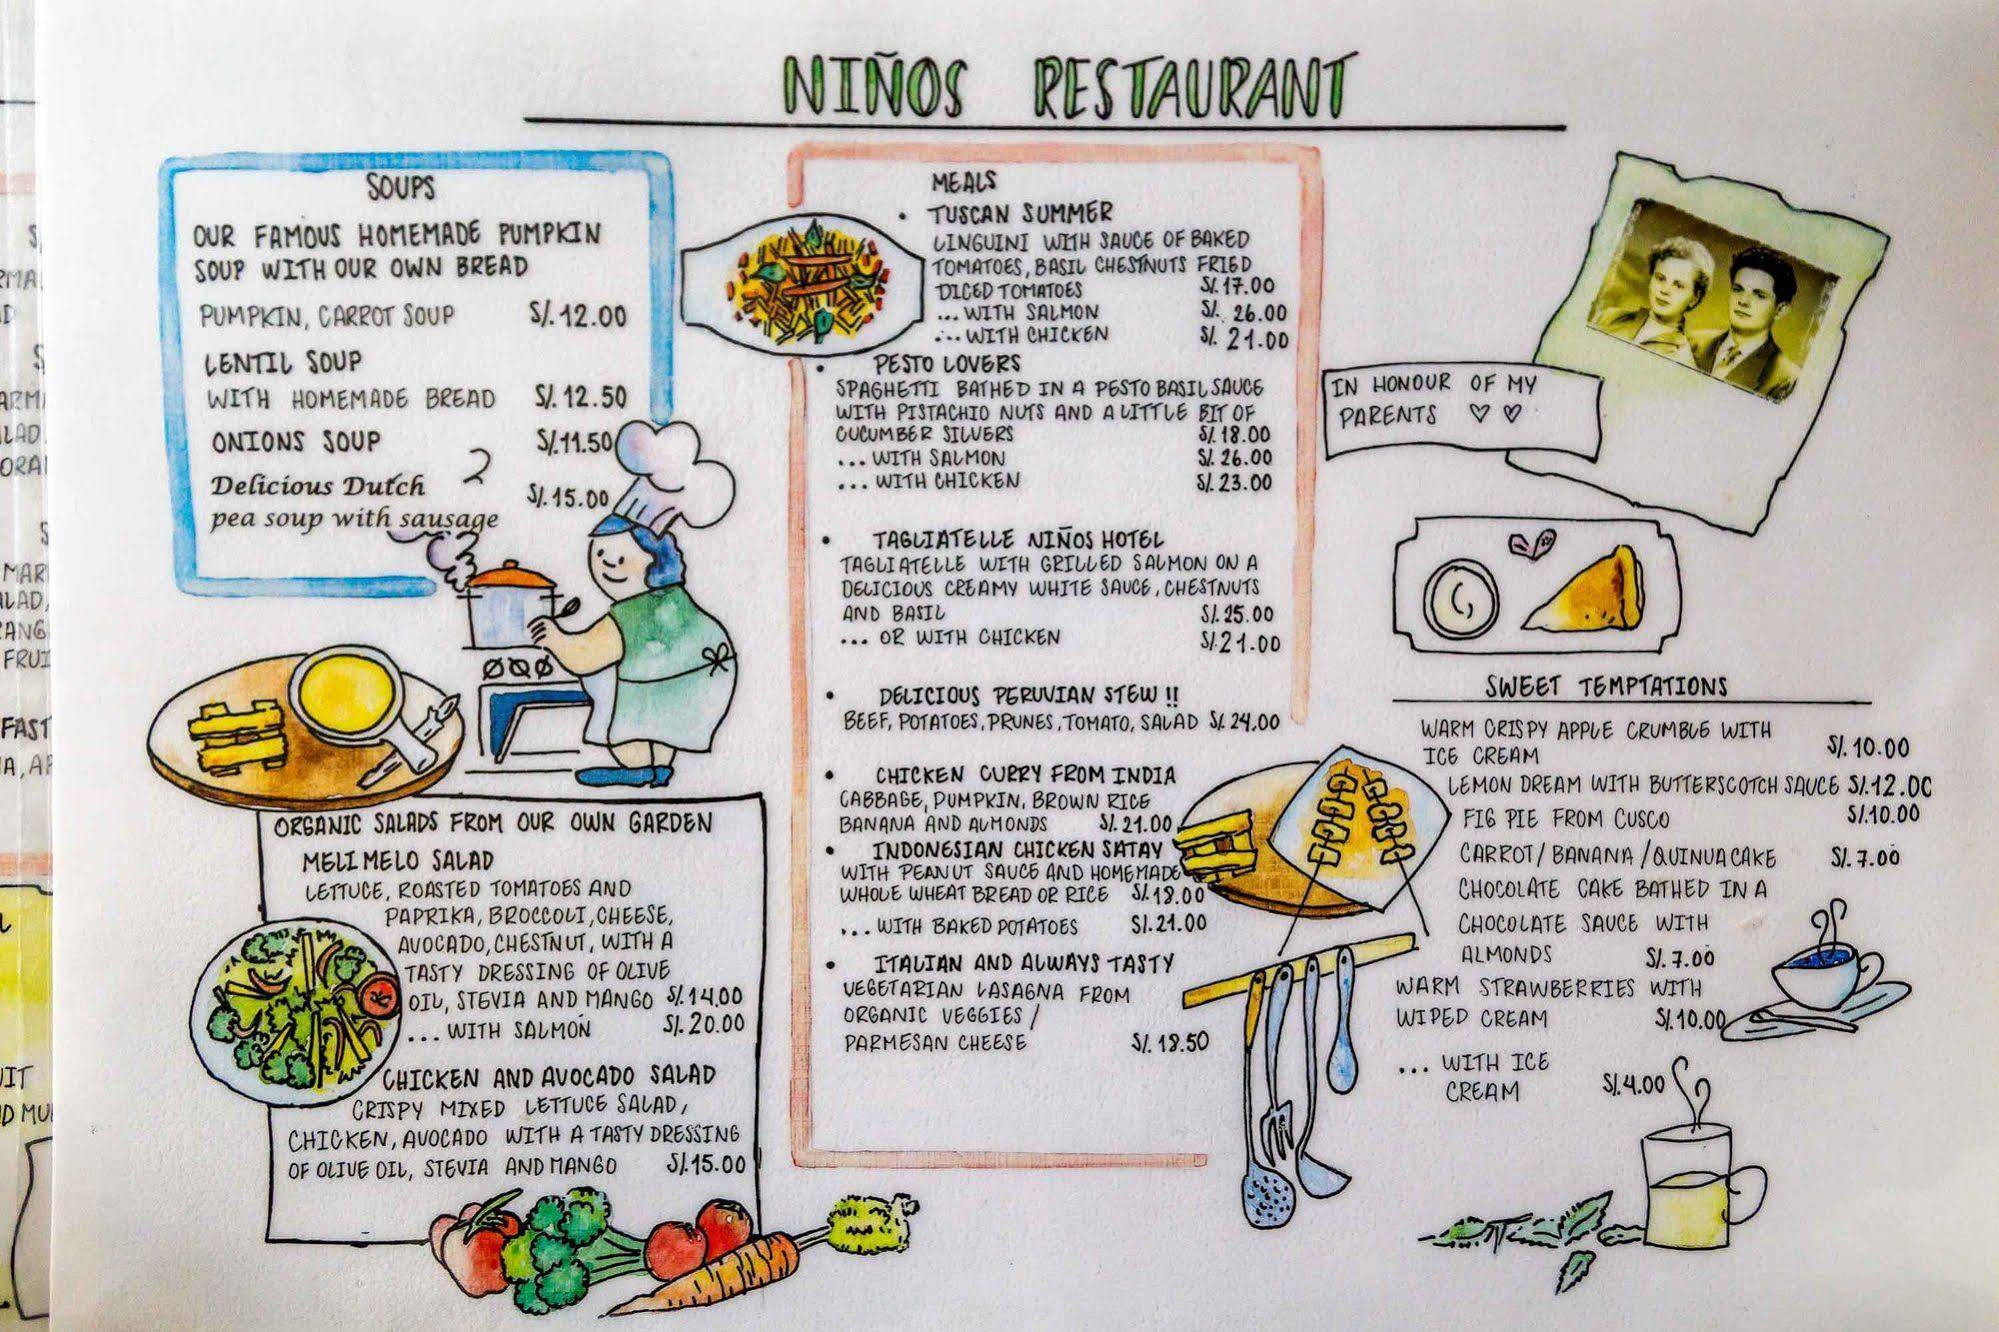 NIÑOS RESTAURANT
SOUPS
OUR FAMOUS HOMEMADE PUMPKIN
SOUP WITH OUR OWN BREAD
PUMPKIN, CARROT SOUP S/. 12.00
LENTIL SOUP
WITH HOMEMADE BREAD S/. 12.50
ONIONS SOUP S/. 11.50
Delicious Dutch
pea soup with sausage S/. 15.00
ORGANIC SALADS FROM OUR OWN GARDEN
MELI MELO SALAD
LETTUCE, ROASTED TOMATOES AND
PAPRIKA, BROCCOLI, CHEESE,
AVOCADO, CHESTNUT, WITH A
TASTY DRESSING OF OLIVE
OIL, STEVIA AND MANGO S/. 14.00
... WITH SALMON S/. 20.00
CHICKEN AND AVOCADO SALAD
CRISPY MIXED LETTUCE SALAD,
CHICKEN, AVOCADO WITH A TASTY DRESSING
OF OLIVE OIL, STEVIA AND MANGO S/. 15.00
MEALS
• TUSCAN SUMMER
LINGUINI WITH SAUCE OF BAKED
TOMATOES, BASIL CHESTNUTS FRIED
DICED TOMATOES S/. 17.00
... WITH SALMON S/. 26.00
... WITH CHICKEN S/. 21.00
• PESTO LOVERS
SPAGHETTI BATHED IN A PESTO BASIL SAUCE
WITH PISTACHIO NUTS AND A LITTLE BIT OF
CUCUMBER SILVERS S/. 18.00
... WITH SALMON S/. 26.00
... WITH CHICKEN S/. 23.00
• TAGLIATELLE NIÑOS HOTEL
TAGLIATELLE WITH GRILLED SALMON ON A
DELICIOUS CREAMY WHITE SAUCE, CHESTNUTS
AND BASIL S/. 25.00
... OR WITH CHICKEN S/. 21.00
• DELICIOUS PERUVIAN STEW !!
BEEF, POTATOES, PRUNES, TOMATO, SALAD S/. 24.00
• CHICKEN CURRY FROM INDIA
CABBAGE, PUMPKIN, BROWN RICE
BANANA AND ALMONDS S/. 21.00
• INDONESIAN CHICKEN SATAY
WITH PEANUT SAUCE AND HOMEMADE
WHOLE WHEAT BREAD OR RICE S/. 18.00
... WITH BAKED POTATOES S/. 21.00
• ITALIAN AND ALWAYS TASTY
VEGETARIAN LASAGNA FROM
ORGANIC VEGGIES /
PARMESAN CHEESE S/. 18.50
IN HONOUR OF MY
PARENTS ♡ ♡
SWEET TEMPTATIONS
WARM CRISPY APPLE CRUMBLE WITH
ICE CREAM S/. 10.00
LEMON DREAM WITH BUTTERSCOTCH SAUCE S/. 12.00
FIG PIE FROM CUSCO S/. 10.00
CARROT / BANANA / QUINUA CAKE S/. 7.00
CHOCOLATE CAKE BATHED IN A
CHOCOLATE SAUCE WITH
ALMONDS S/. 7.00
WARM STRAWBERRIES WITH
WIPED CREAM S/. 10.00
... WITH ICE
CREAM S/. 4.00